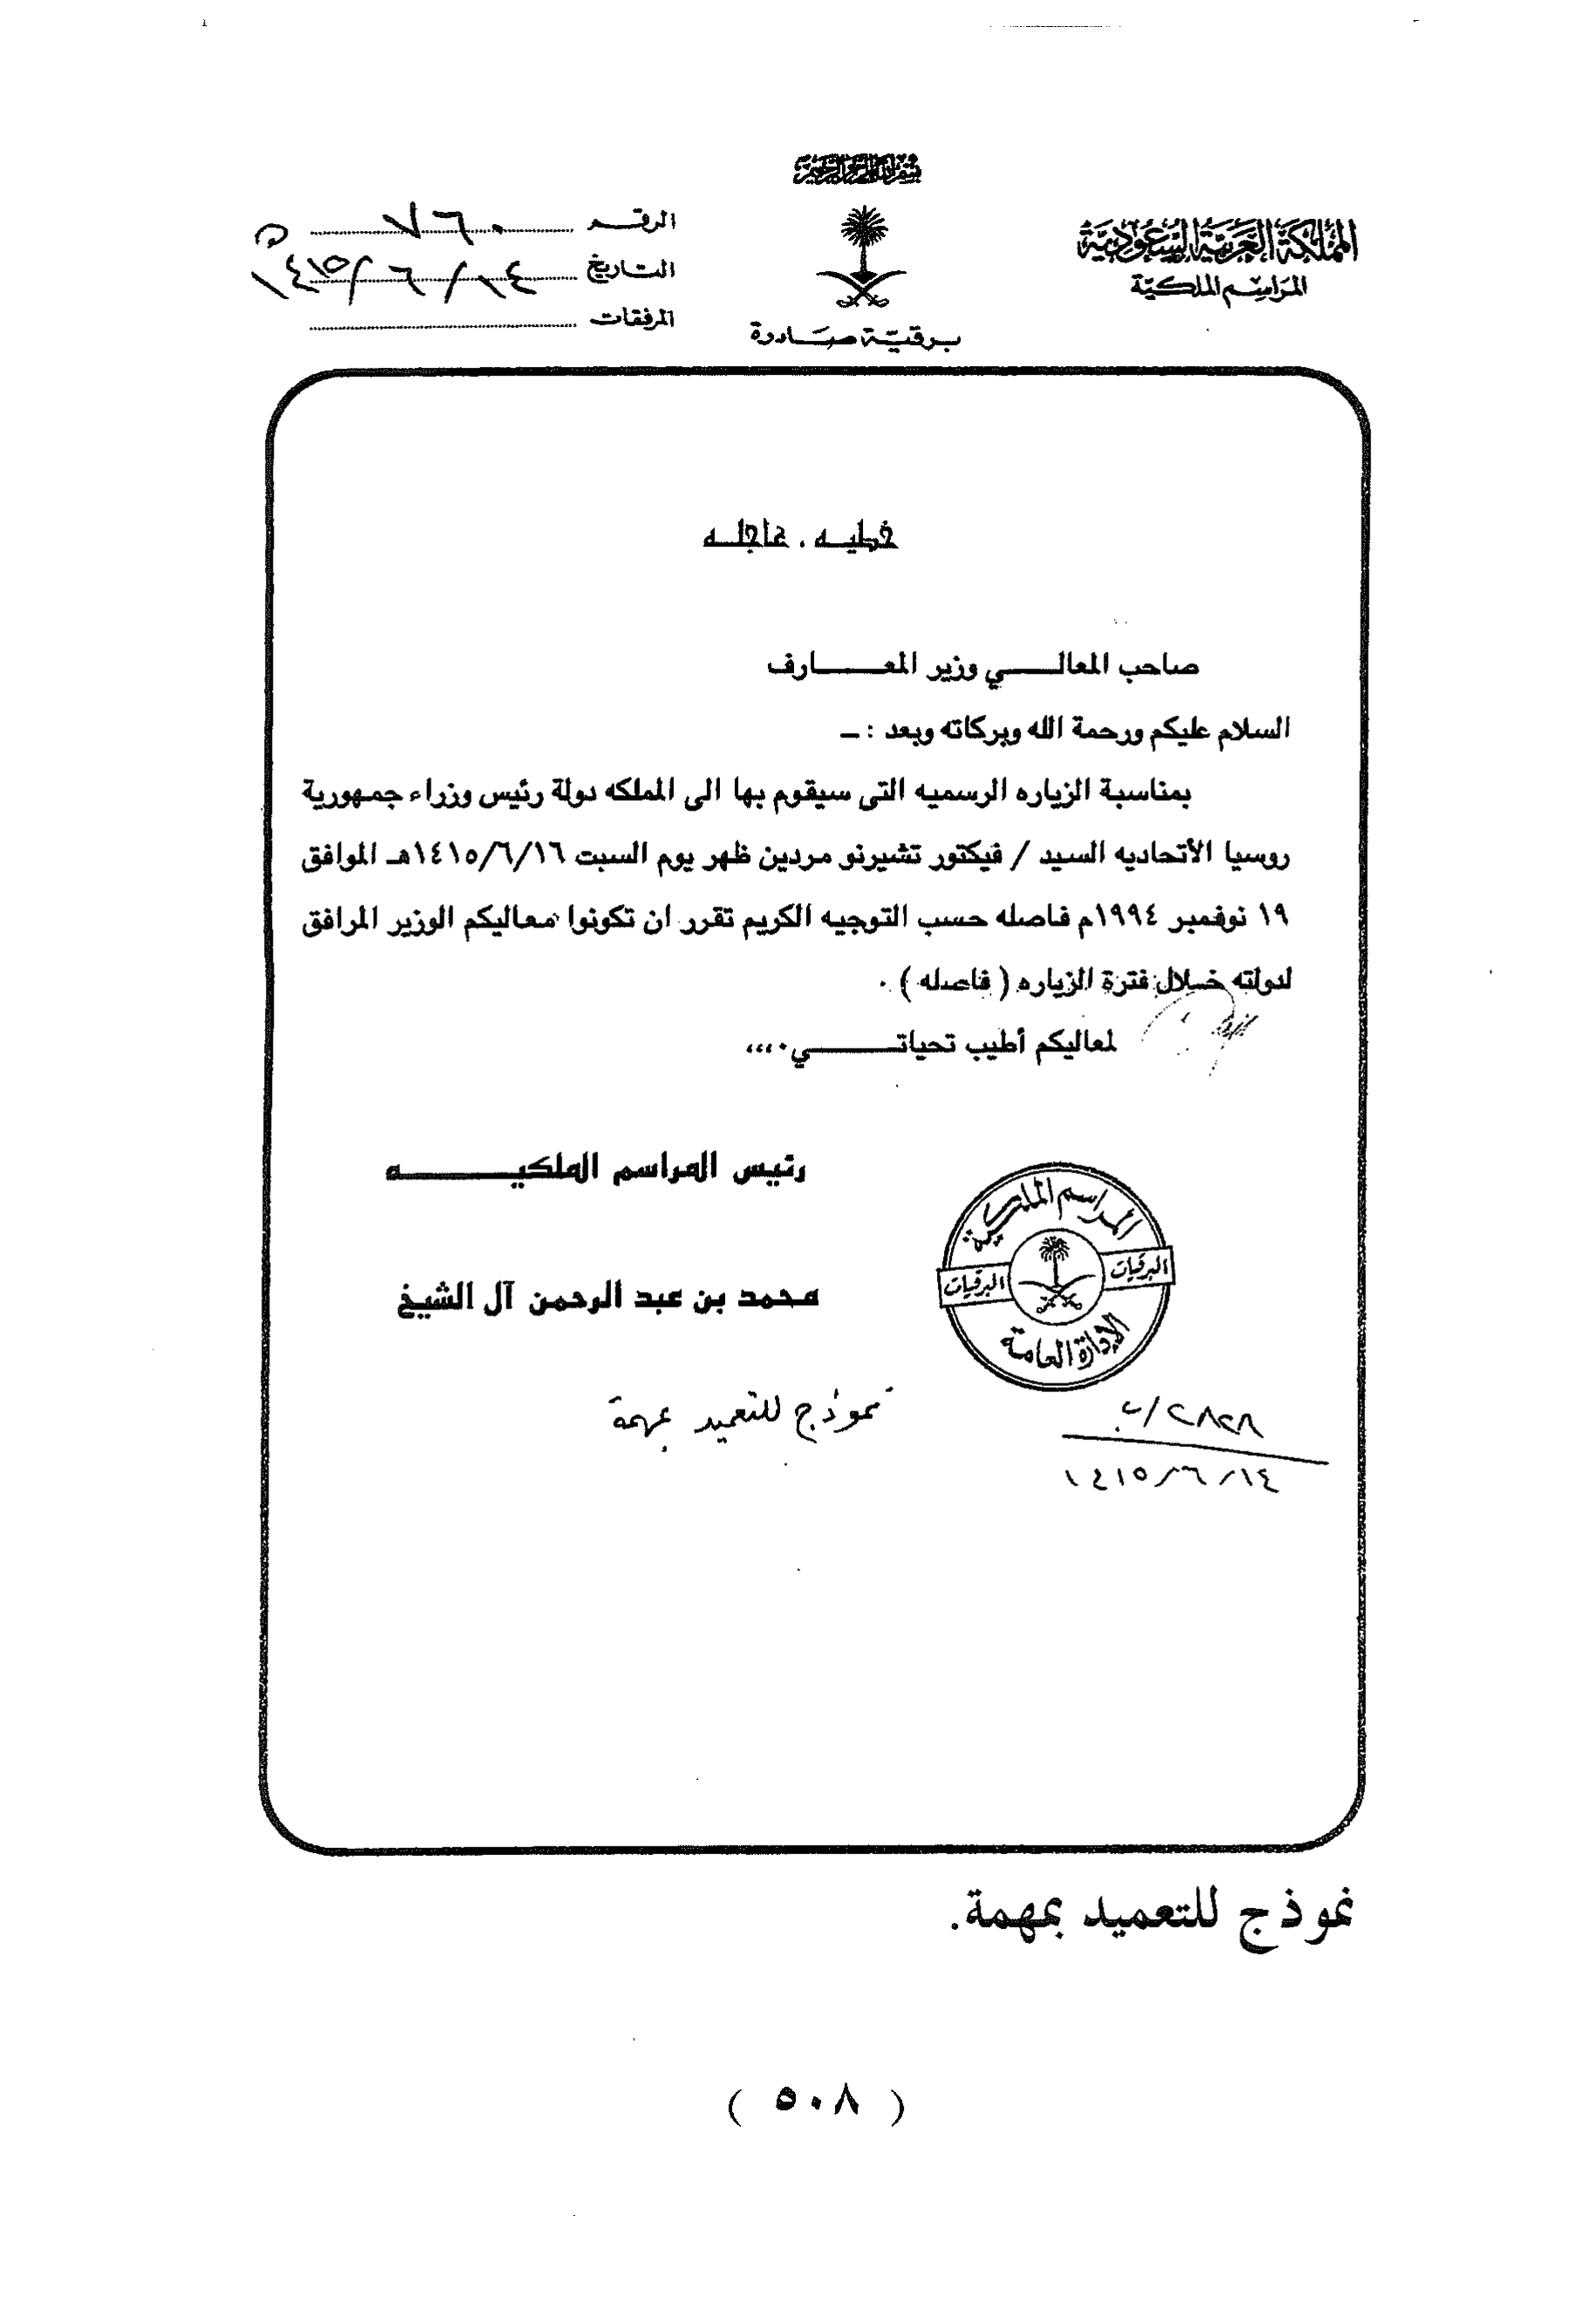 بسم الله الرحمن الرحيم
المملكة العربية السعودية
المراسم الملكية
برقية صادرة
الرقم ٧٦٠ ٥
التاريخ ١٤١٥/٦/١٤
المرفقات
خطيه . عاجله
صاحب المعالي وزير المعارف
السلام عليكم ورحمة الله وبركاته وبعد : ــ
بمناسبة الزياره الرسميه التى سيقوم بها الى المملكه دولة رئيس وزراء جمهورية
روسيا الأتحاديه السيد / فيكتور تشيرنو مردين ظهر يوم السبت ١٤١٥/٦/١٦هـ الموافق
١٩ نوفمبر ١٩٩٤م فاصله حسب التوجيه الكريم تقرر ان تكونوا معاليكم الوزير المرافق
لدولته خلال فترة الزياره ( فاصله ) .
لمعاليكم أطيب تحياتي.،،،
رئيس المراسم الملكيه
محمد بن عبد الرحمن آل الشيخ
المراسم الملكية
البرقيات البرقيات
الإدارة العامة
نموذج للتعميد بمهمة
٢٨٢٨/ب
١٤١٥/٦/١٤
نموذج للتعميد بمهمة.
( ٥٠٨ )